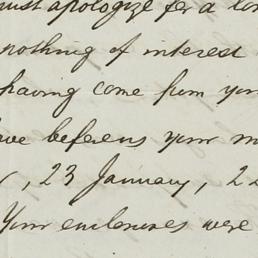 must apologize for a lon
nothing of interest
having come from you
have before us your m
, 23 January, 22
Your enclosures were